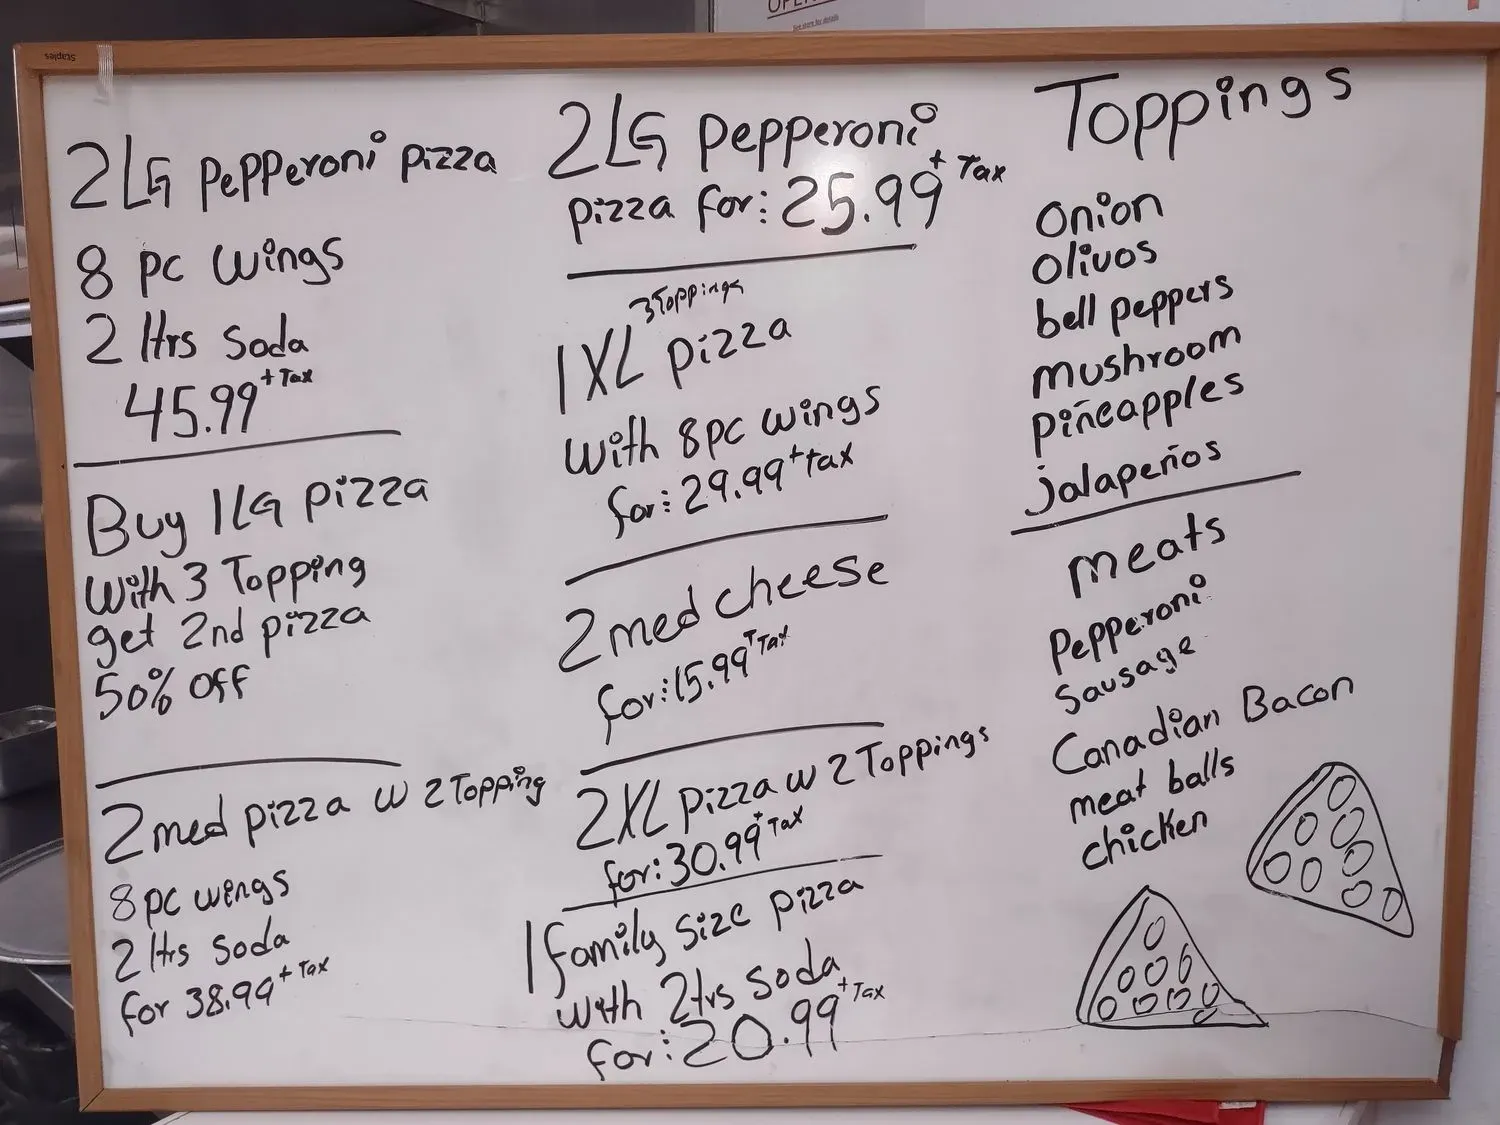 Staples
OPEN
See store for details
2 LG pepperoni pizza
8 pc wings
2 ltrs soda
45.99 + Tax
Buy 1 LG pizza
with 3 Topping
get 2nd pizza
50% off
2 med pizza w 2 Topping
8 pc wings
2 ltrs soda
for 38.99 + Tax
2 LG pepperoni
pizza for: 25.99 + Tax
3 Toppings
1 XL pizza
with 8 pc wings
for: 29.99 + tax
2 med cheese
for: 15.99 + Tax
2 XL pizza w 2 Toppings
for: 30.99 + Tax
1 family size pizza
with 2 ltrs soda
for: 20.99 + Tax
Toppings
onion
olivos
bell peppers
mushroom
piñeapples
jalapeños
meats
pepperoni
sausage
Canadian Bacon
meat balls
chicken